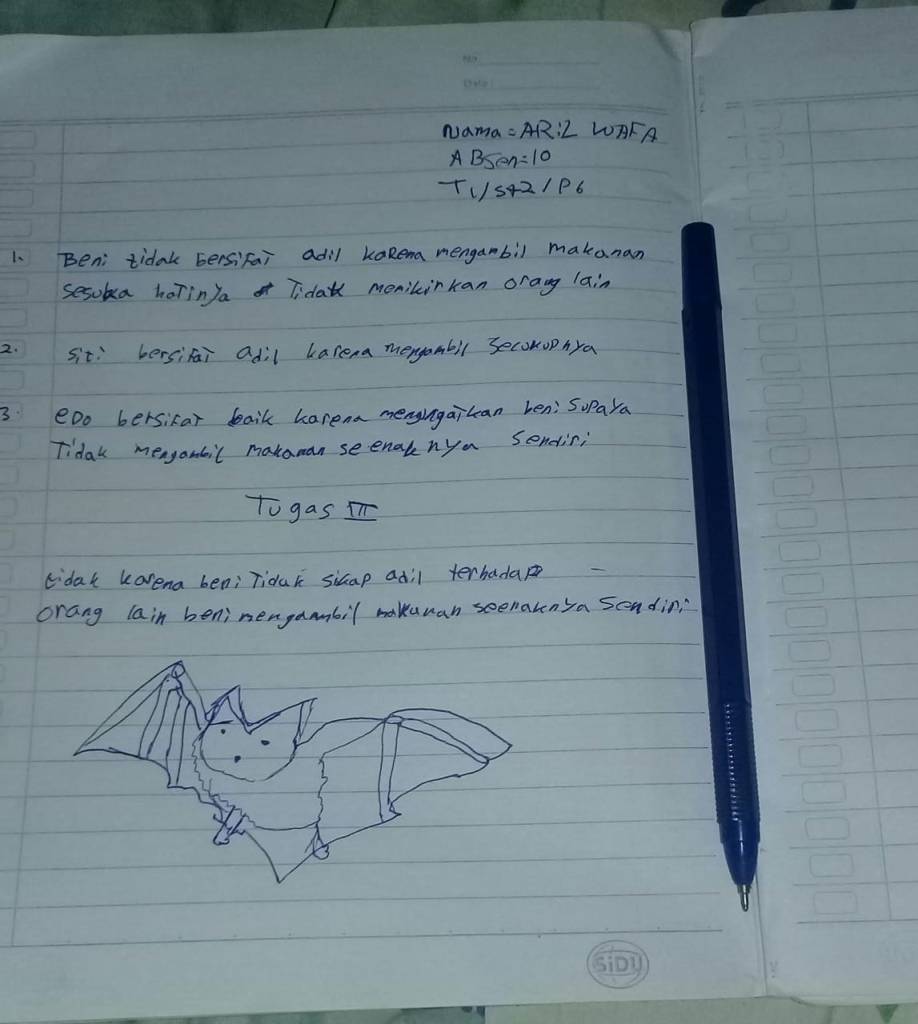 No
Date
Nama = ARiL WAFA
ABsen=10
T1/St2/P6
1. Beni tidak bersifat adil karena mengambil makanan
sesuka hatinya Tidak memikirkan orang lain
2. Siti bersifat adil karena mengambil secukupnya
3. eDo bersifat baik karena mengingatkan beni supaya
Tidak mengambil makanan seenaknya sendiri
Tugas III
tidak karena beni Tidak sikap adil terhadap
orang lain beni mengambil makanan seenaknya sendiri
SiDU